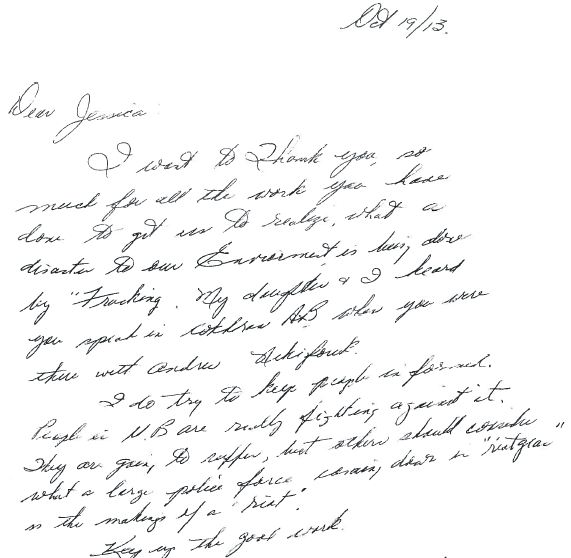 Oct 19/13.
Dear Jessica
I want to Thank you, so
much for all the work you have
done to get us to realize, what a
disaster to our Enviorment is being done
by "Fracking. My daughter & I heard
you speak in Cochrane AB when you were
there with Andrew
I do try to keep people in formed.
People in N B are really fighting against it.
They are going to suffer, but others should consider
what a large police force coming down in "riotgear"
is the makings of a "riot".
Keep up the good work.